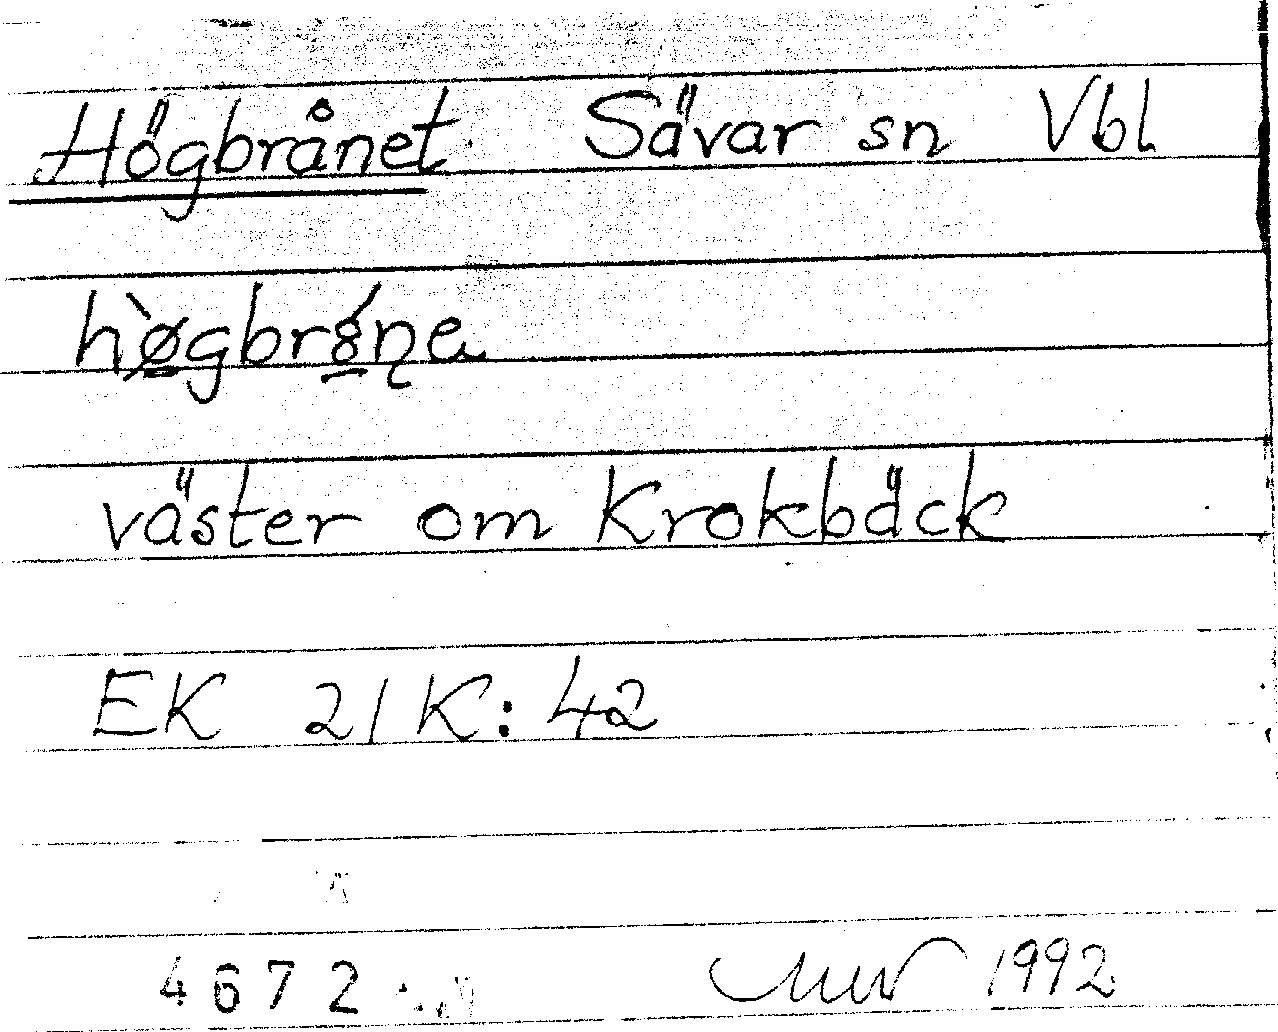 Högbrånet Sävar sn Vbl
hø̲̀gbr8̲́n̨e
väster om Krokbäck
EK 21K:42
4672 1992